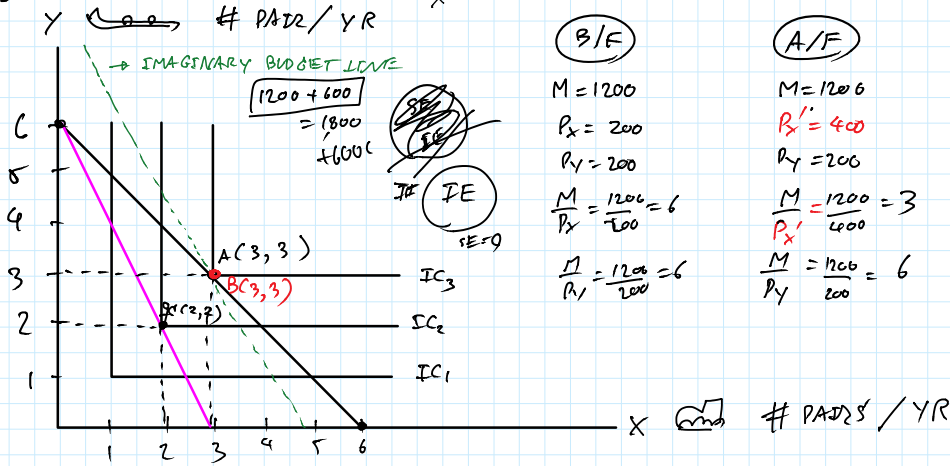 Y # PAIR/YR
→ IMAGINARY BUDGET LINE
1200 + 600
= 1800
+600
SE
IE
IE
IE
SE=0
6
5
4
3
2
1
A(3,3)
B(3,3)
C(2,2)
IC3
IC2
IC1
1 2 3 4 5 6
X # PAIRS / YR
B/F
M = 1200
Px = 200
Py = 200
M/Px = 1200/200 = 6
M/Py = 1200/200 = 6
A/F
M = 1200
Px' = 400
Py = 200
M/Px' = 1200/400 = 3
M/Py = 1200/200 = 6